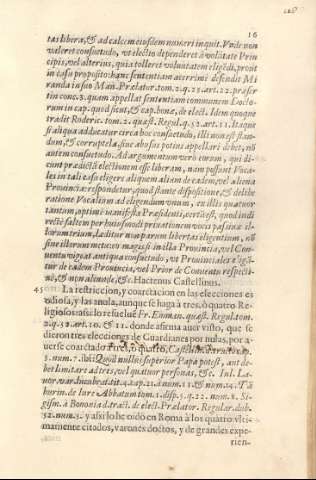 16
tas liberæ, & ad calcem eiusdem numeri inquit. Vnde non
valeret consuetudo, vt electio dependeret à volūtate Prin
cipis, vel alterius, quia tolleret voluntatem eligēdi, prout
in casu proposito: hanc sententiam acerrimè defendit Mi
randa in suo Man. Prælator. tom. 2. q. 23. art. 22. præser
tin conc. 3. quam appellat sententiam communem Docto-
rum in cap. quod sicut, & cap. bonæ, de elect. Idem quoque
tradit Roderic. tom. 2. quæst. Regul. q. 52. art. 11. Itaque
si aliqua adducatur circa hoc consuetudo, illi non est stan-
dum, & corruptela, siue abusus potius appellari debet, nō
autem consuetudo. Ad argumentum verò eorum, qui di-
cunt prædictā electionem esse liberam, nam possunt Voca-
les in tali casu eligere aliquem alium de eadem, vel aliena
Prouincia: respondetur, quod stante dispositione, & delibe
ratione Vocalium ad eligendum vnum, ex illis quatuor
tantum, optimè
rectè saltem per huiusmodi priuationem vocis passiuæ il-
lorum
siue illorum
uentu vigeat antiqua consuetudo, vt Prouinciales eligā-
tur de eadem Prouincia, vel Prior de Conuentu respecti-
uè, & non aliundè, &c. Hactenus Castellinus.
45 La restriccion, y coarctacion en las elecciones es
odiosa, y las anula, aunque se haga à tres, ò quatro Re-
ligiosos: assi lo resuelue Fr. Emman. quæst. Regul. tom.
2. q. 52. art. 10. & 11. donde afirma auer visto, que se
dieron tres elecciones de Guardianes por nulas, por a-
uerse coarctado à tres, ò quatro,
5. num. 7. ibi: Quòd nulli superior Papa potest, aut de-
bet limitare ad tres, vel quatuor personas, &c. Iul. La-
uor.
burin. de Iure Abbatum tom. 1. disp. 5. q. 22. num. 8. Se-
gism. à Bononia de elect. Prælator. Regular. dub.
52. num. 3. y assi lo he oido en Roma à los quatro vlti-
mamente citados, varones doctos, y de grandes expe-
rien-